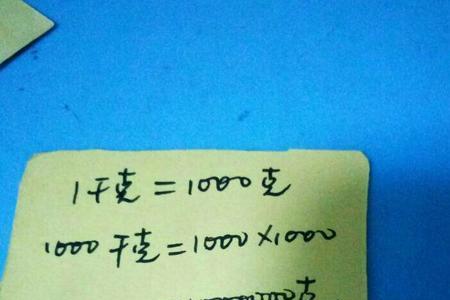 1千克=1000克
1000千克=1000×1000
克